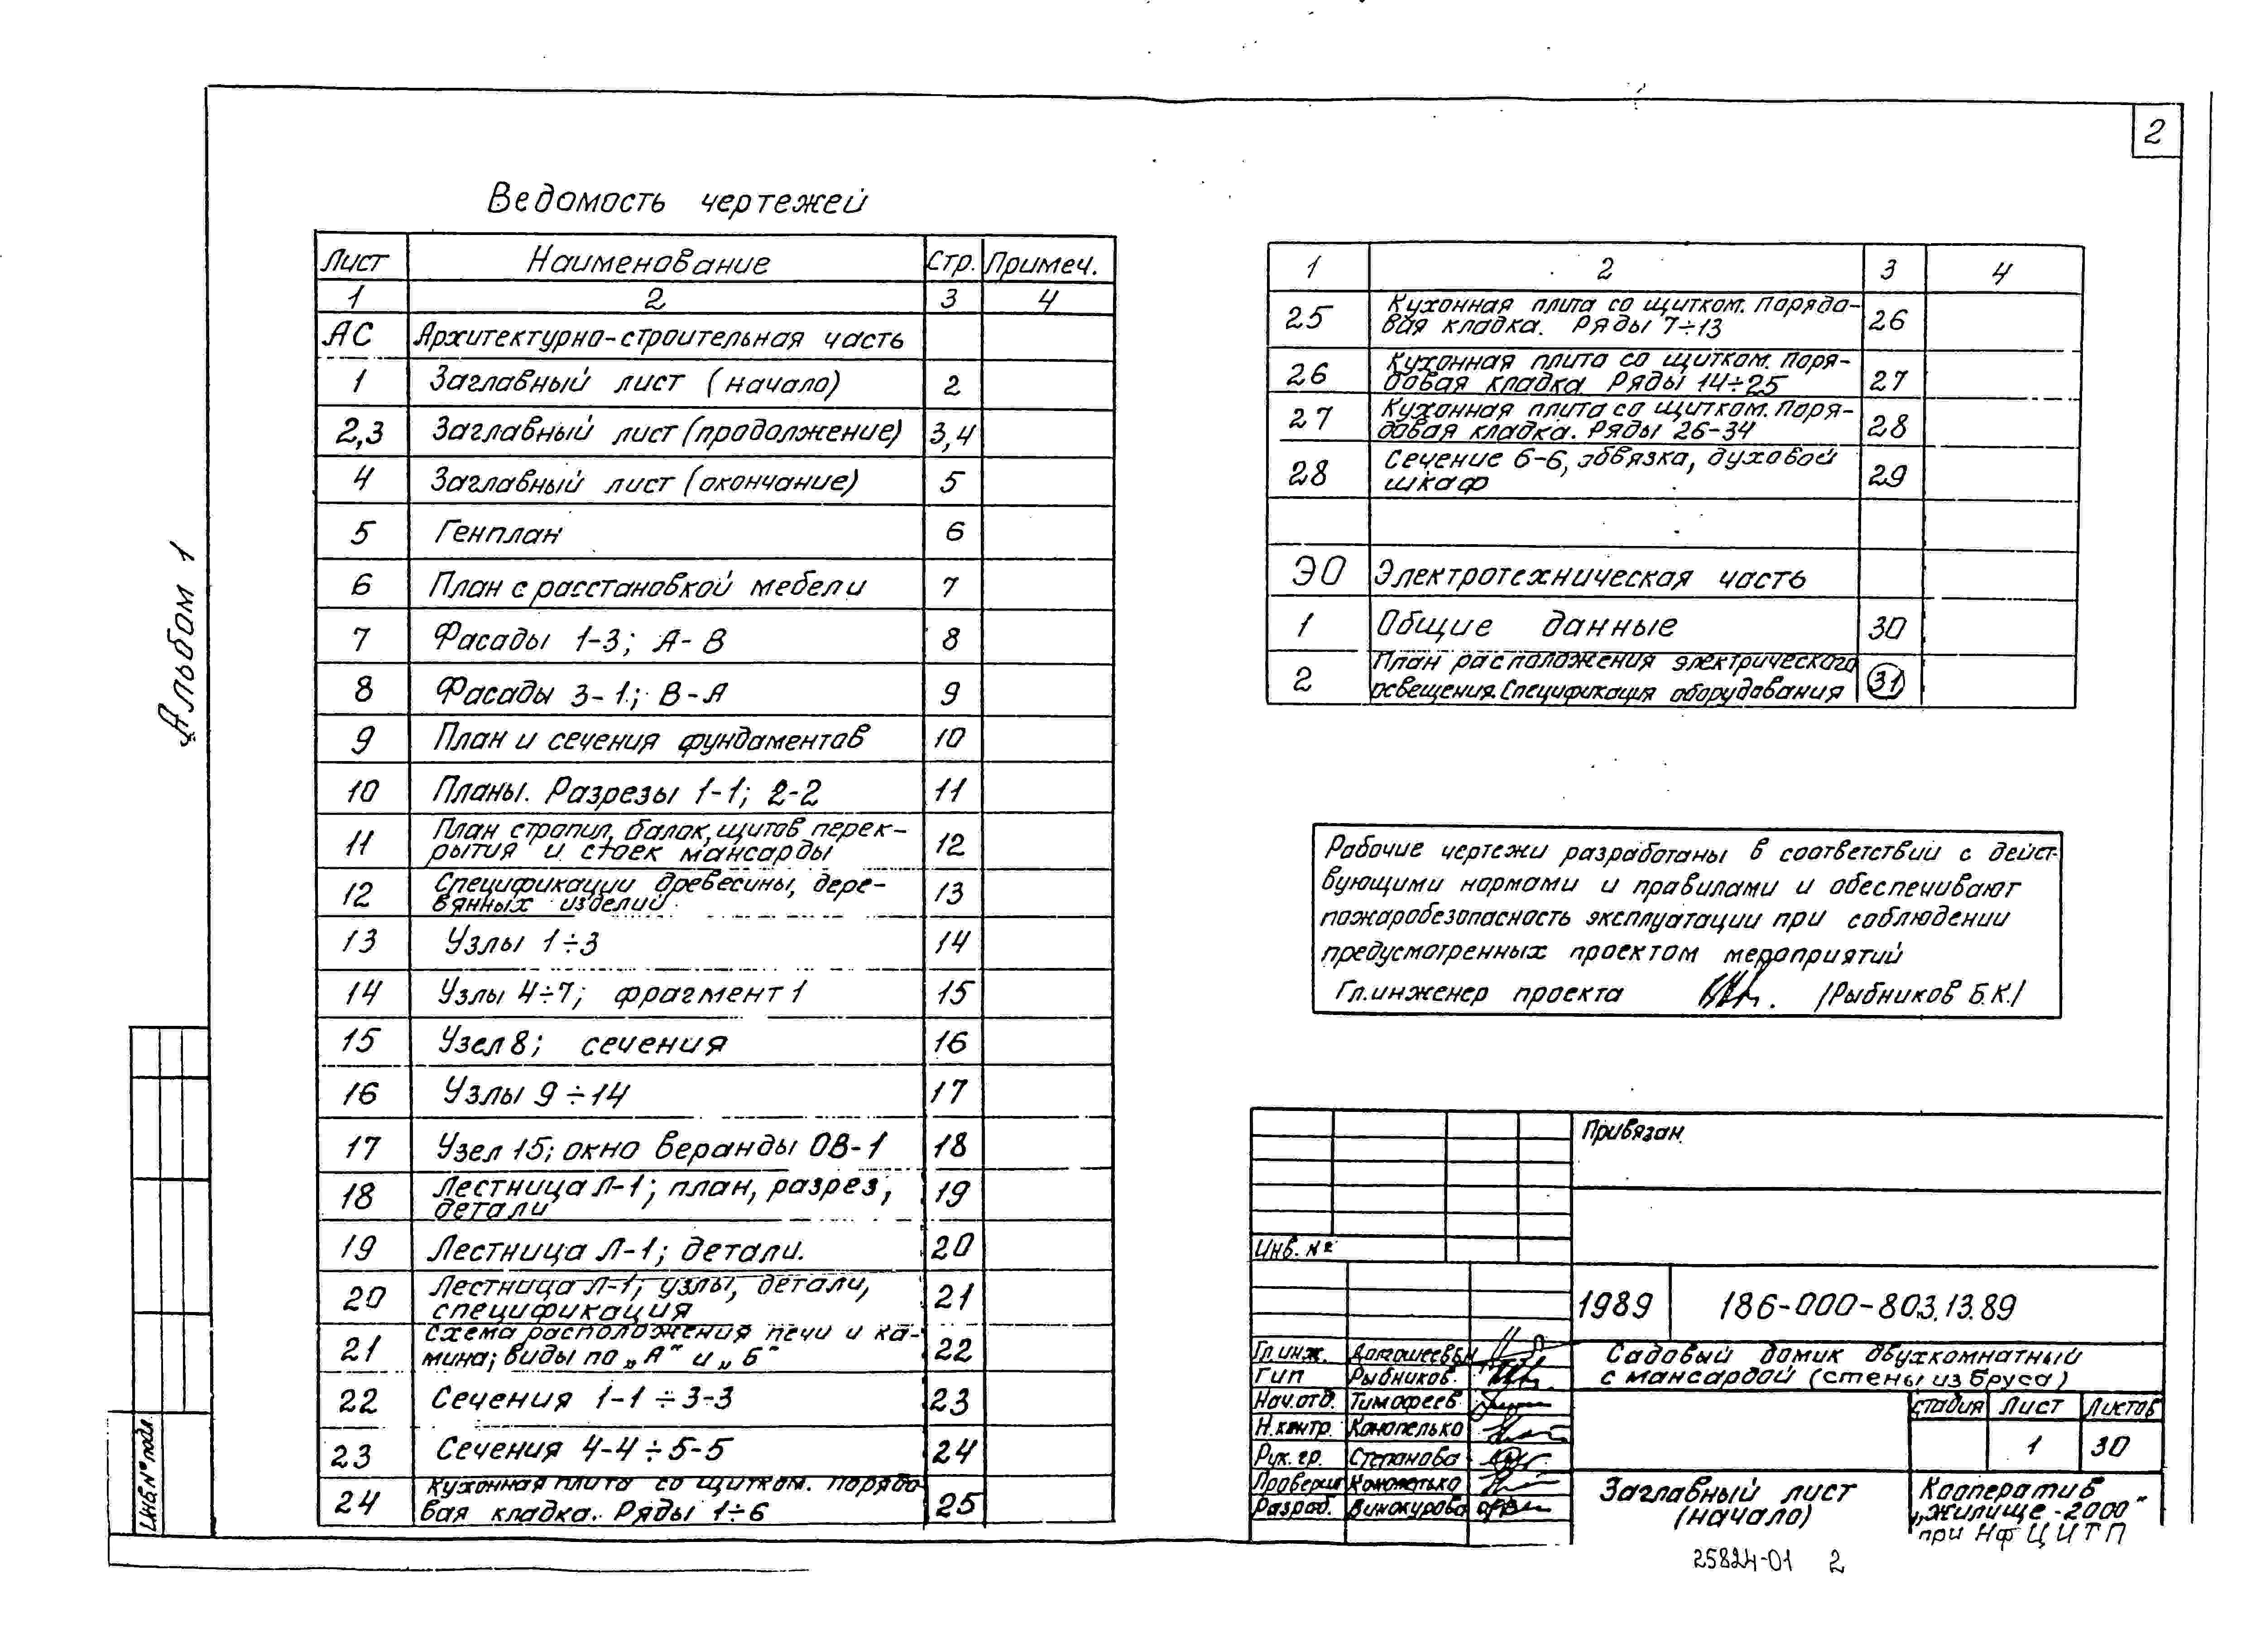 2
Альбом 1
Ведомость чертежей
Лист Наименование Стр. Примеч.
1 2 3 4
АС Архитектурно-строительная часть
1 Заглавный лист (начало) 2
2,3 Заглавный лист (продолжение) 3,4
4 Заглавный лист (окончание) 5
5 Генплан 6
6 План с расстановкой мебели 7
7 Фасады 1-3; А-В 8
8 Фасады 3-1; В-А 9
9 План и сечения фундаментов 10
10 Планы. Разрезы 1-1; 2-2 11
11 План стропил, балок, щитов перек-
рытия и стоек мансарды 12
12 Спецификации древесины, дере-
вянных изделий 13
13 Узлы 1÷3 14
14 Узлы 4÷7; фрагмент 1 15
15 Узел 8; сечения 16
16 Узлы 9÷14 17
17 Узел 15; окно веранды ОВ-1 18
18 Лестница Л-1; план, разрез,
детали 19
19 Лестница Л-1; детали. 20
20 Лестница Л-1; узлы, детали,
спецификация 21
21 Схема расположения печи и ка-
мина; виды по „А" и „Б" 22
22 Сечения 1-1÷3-3 23
23 Сечения 4-4÷5-5 24
24 Кухонная плита со щитком. Порядо-
вая кладка. Ряды 1÷6 25
1 2 3 4
25 Кухонная плита со щитком. Порядо-
вая кладка. Ряды 7÷13 26
26 Кухонная плита со щитком. Поря-
довая кладка Ряды 14÷25 27
27 Кухонная плита со щитком. Поря-
довая кладка. Ряды 26-34 28
28 Сечение 6-6, обвязка, духовой
шкаф 29
ЭО Электротехническая часть
1 Общие данные 30
2 План расположения электрического
освещения. Спецификация оборудования 31
Рабочие чертежи разработаны в соответствии с дейст-
вующими нормами и правилами и обеспечивают
пожаробезопасность эксплуатации при соблюдении
предусмотренных проектом мероприятий
Гл. инженер проекта /Рыбников Б.К./
Привязан
Инв. №
1989 186-000-803.13.89
Гл. инж.
ГИП Рыбников
Нач. отд. Тимофеев
Н. контр. Конопелько
Рук. гр. Степанова
Проверил Конопелько
Разраб. Винокурова
Садовый домик двухкомнатный
с мансардой (стены из бруса)
стадия Лист Листов
1 30
Заглавный лист
(начало)
Кооператив
„Жилище-2000"
при НФ ЦИТП
Инв. № подл.
25824-01 2